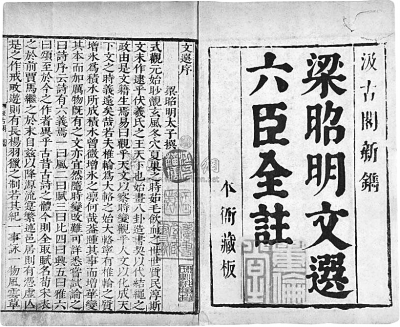 汲古閣新鐫
梁昭明文選
六臣全註
本衙藏板
文選序
梁昭明太子撰
式觀元始眇覿玄風冬穴夏巢之時茹毛飲血之世世質民淳斯
文未作逮乎伏羲氏之王天下也始畫八卦造書契以代結繩之
政由是文籍生焉易曰觀乎天文以察時變觀乎人文以化成天
下文之時義遠矣哉若夫椎輪為大輅之始大輅寧有椎輪之質
增冰為積水所成積水曾微增冰之凜何哉蓋踵其事而增華變
其本而加厲物既有之文亦宜然隨時變改難可詳悉嘗試論之
曰詩序云詩有六義焉一曰風二曰賦三曰比四曰興五曰雅六
曰頌至於今之作者異乎古昔古詩之體今則全取賦名荀宋表
之於前賈馬繼之於末自茲以降源流寔繁述邑居則有憑虛亡
是之作戒畋遊則有長楊羽獵之制若其紀一事詠 物風雲草